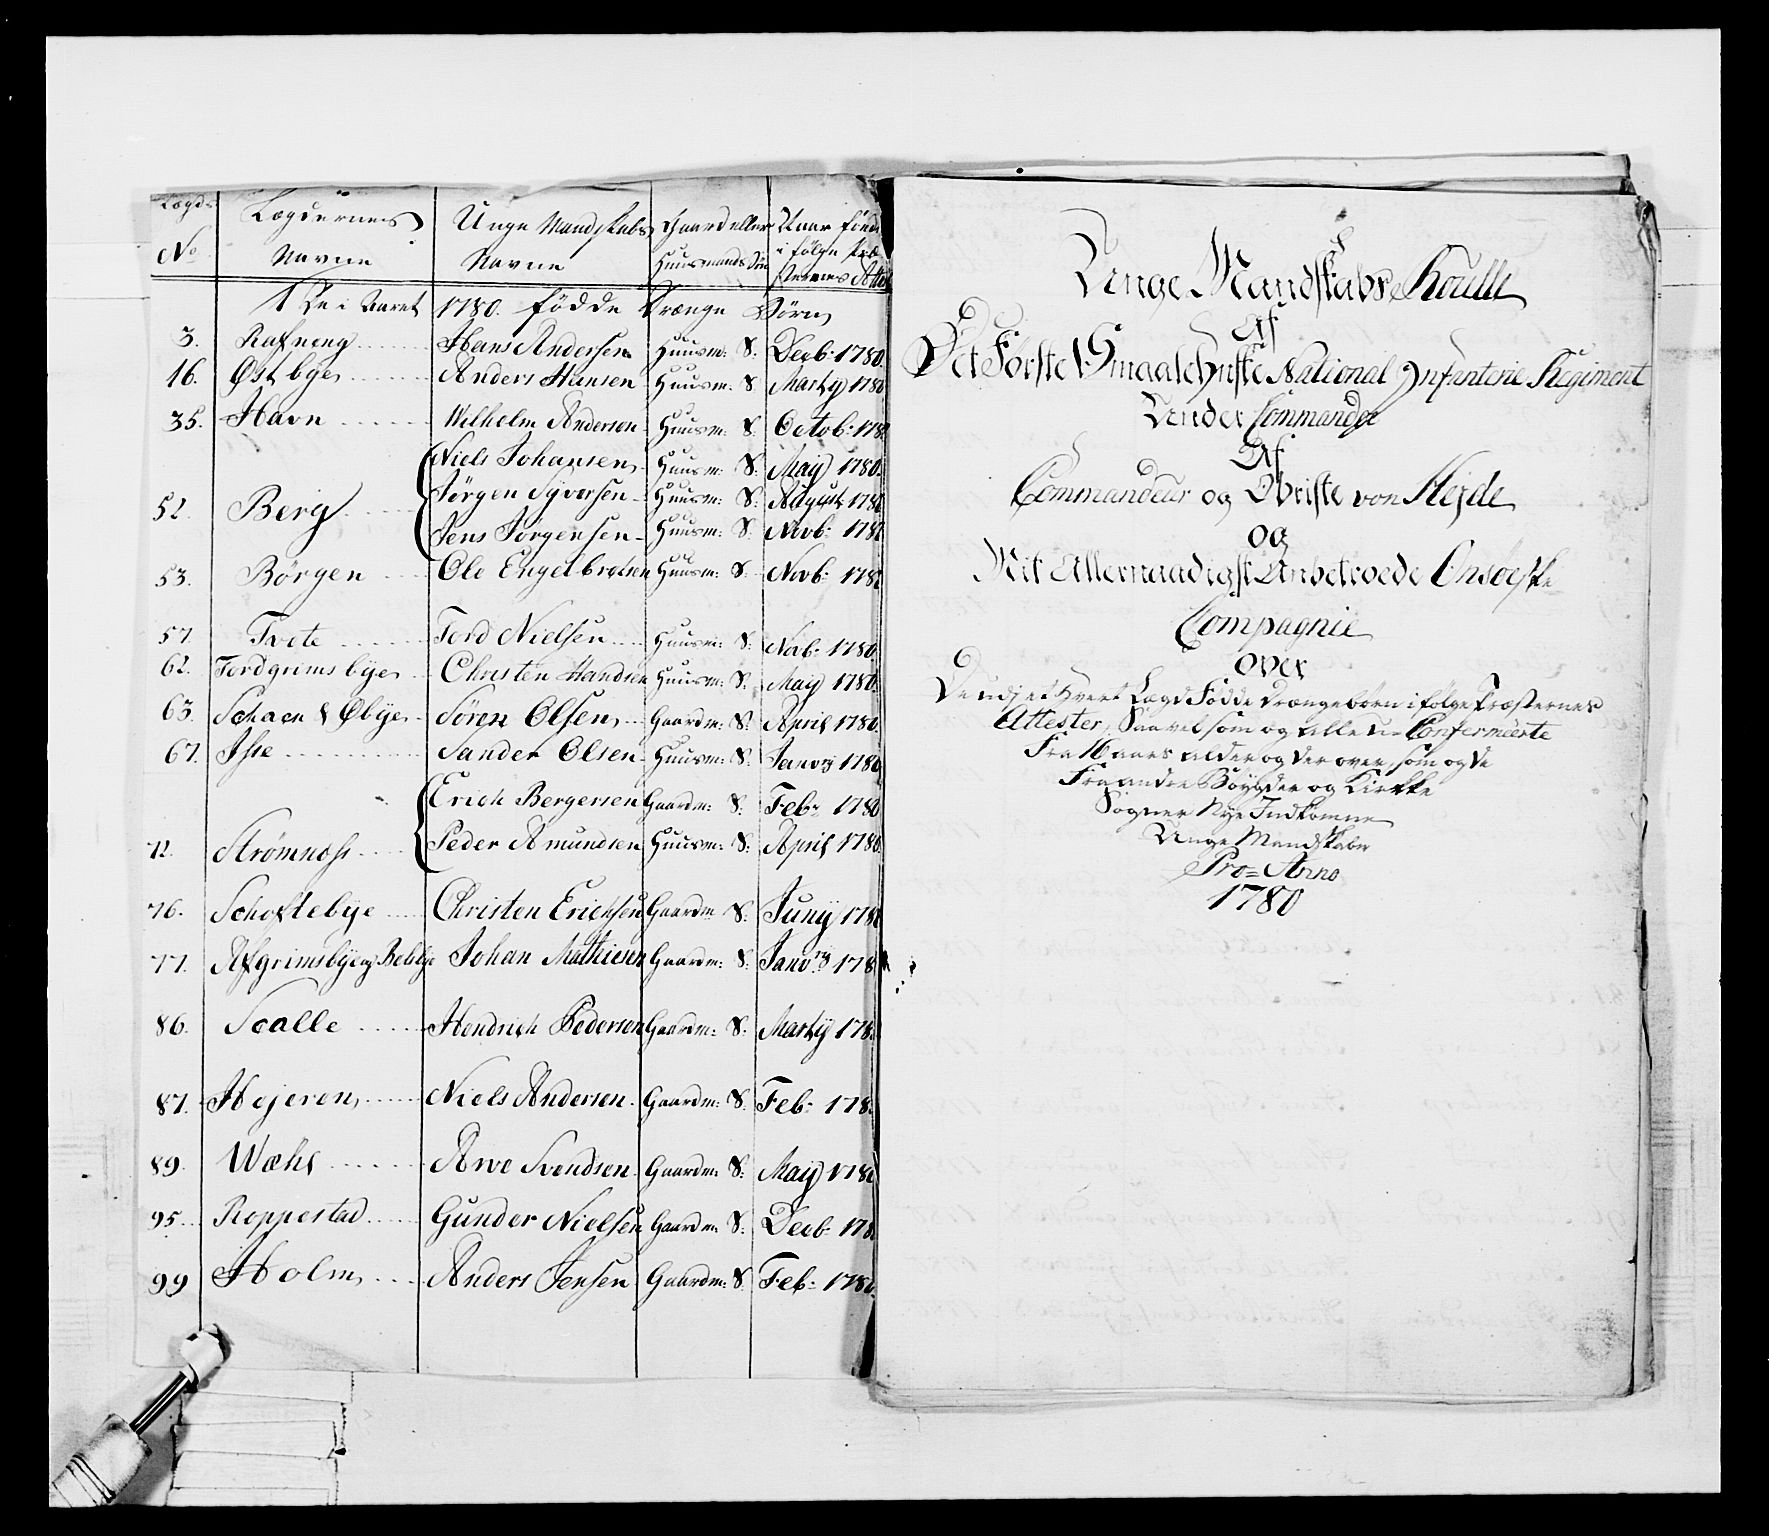 Lægds No | Lægdernes Navne | Unge Mandskabs Navne | Gaard eller Huusmands Søn | Naar födde i følge Præsternes Attest
De i Aaret 1780. födde Drænge Börn
3. Rafneng | Hans Andersen | Huusm: S: | Decb: 1780.
16. Østbye | Anders Hansen | Huusm: S | Marty 1780
35. Havn | Wilhelm Andersen | Huusm: S. | Octob: 178
Niels Johansen | Huusm: S: | Maij 1780.
52. Berg | Jörgen Syversen | Huusm: S: | August 178
Jens Jörgensen | Huusm: S. | Novb: 178
53. Börgen | Ole Engelbretsen | Huusm: S. | Novb: 178
57. Tvete | Tord Nielsen | Huusm: S: | Novb: 1780.
62. Tordgrimsbye | Christen Handsen | Huusm: S. | Maij 1780.
63. Schaen & Øbye | Sören Olsen | Gaardm: S. | April 1780.
67. Isse | Sander Olsen | Huusm: S: | Janvy 1780
Erich Bergersen | Gaardm: S. | Feb: 1780
72. Strömness | Peder Amundsen | Huusm: S: | April 1780.
76. Schoftebye | Christen Erichsen | Gaardm S. | Junij 178
77. Afgrimsbye og Bekbye | Johan Mathiesen | Gaardm: S. | Janvry 178
86. Scalle | Hendrich Pedersen | Gaardm: S. | Martij 178
87. Hejeren | Niels Andersen | Gaardm: S: | Feb: 178
89. Wæhl | Arve Svendsen | Gaardm: S: | Maij 178
95. Roppestad | Gunder Nielsen | Gaardm: S: | Decb: 178
99 Holm | Anders Jensen | Gaardm: S. | Feb: 1780.
Unge Mandskabs Roulle
Af
Det Første Smaalehnske National Infanterie Regiment
Under Commando
Af
Commandeur og Obriste von Hejde
og
Mit Allernaadigst Anbetroede Onsøeske
Compagnie
over
De udj et hvert Lægd Födde Drængebörn i følge Præsternes
Attester, Saavelsom og alle u-Confermeerte
Fra 16 Aars alder og der over, som og de
Fra andre Böygder og Kirke
Sogner Nye Indkomne
Unge Mandskabe
Pro = Anno
1780